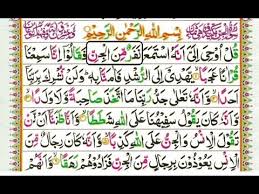 بِسْمِ اللّٰهِ الرَّحْمٰنِ الرَّحِيْمِ
قُلْ اُوْحِيَ اِلَيَّ اَنَّهُ اسْتَمَعَ نَفَرٌ مِّنَ الْجِنِّ فَقَالُوْۤا اِنَّا سَمِعْنَا
قُرْاٰنًا عَجَبًا ۙ يَّهْدِيْۤ اِلَى الرُّشْدِ فَاٰمَنَّا بِهٖ ؕ وَلَنْ نُّشْرِكَ بِرَبِّنَاۤ
اَحَدًا ۙ وَّاَنَّهٗ تَعٰلٰى جَدُّ رَبِّنَا مَا اتَّخَذَ صَاحِبَةً وَّلَا وَلَدًا ۙ وَّاَنَّهٗ
كَانَ يَقُوْلُ سَفِيْهُنَا عَلَى اللّٰهِ شَطَطًا ۙ وَّاَنَّا ظَنَنَّاۤ اَنْ لَّنْ
تَقُوْلَ الْاِنْسُ وَالْجِنُّ عَلَى اللّٰهِ كَذِبًا ۙ وَّاَنَّهٗ كَانَ رِجَالٌ مِّنَ
الْاِنْسِ يَعُوْذُوْنَ بِرِجَالٍ مِّنَ الْجِنِّ فَزَادُوْهُمْ رَهَقًا ۙ وَّاَنَّهُمْ